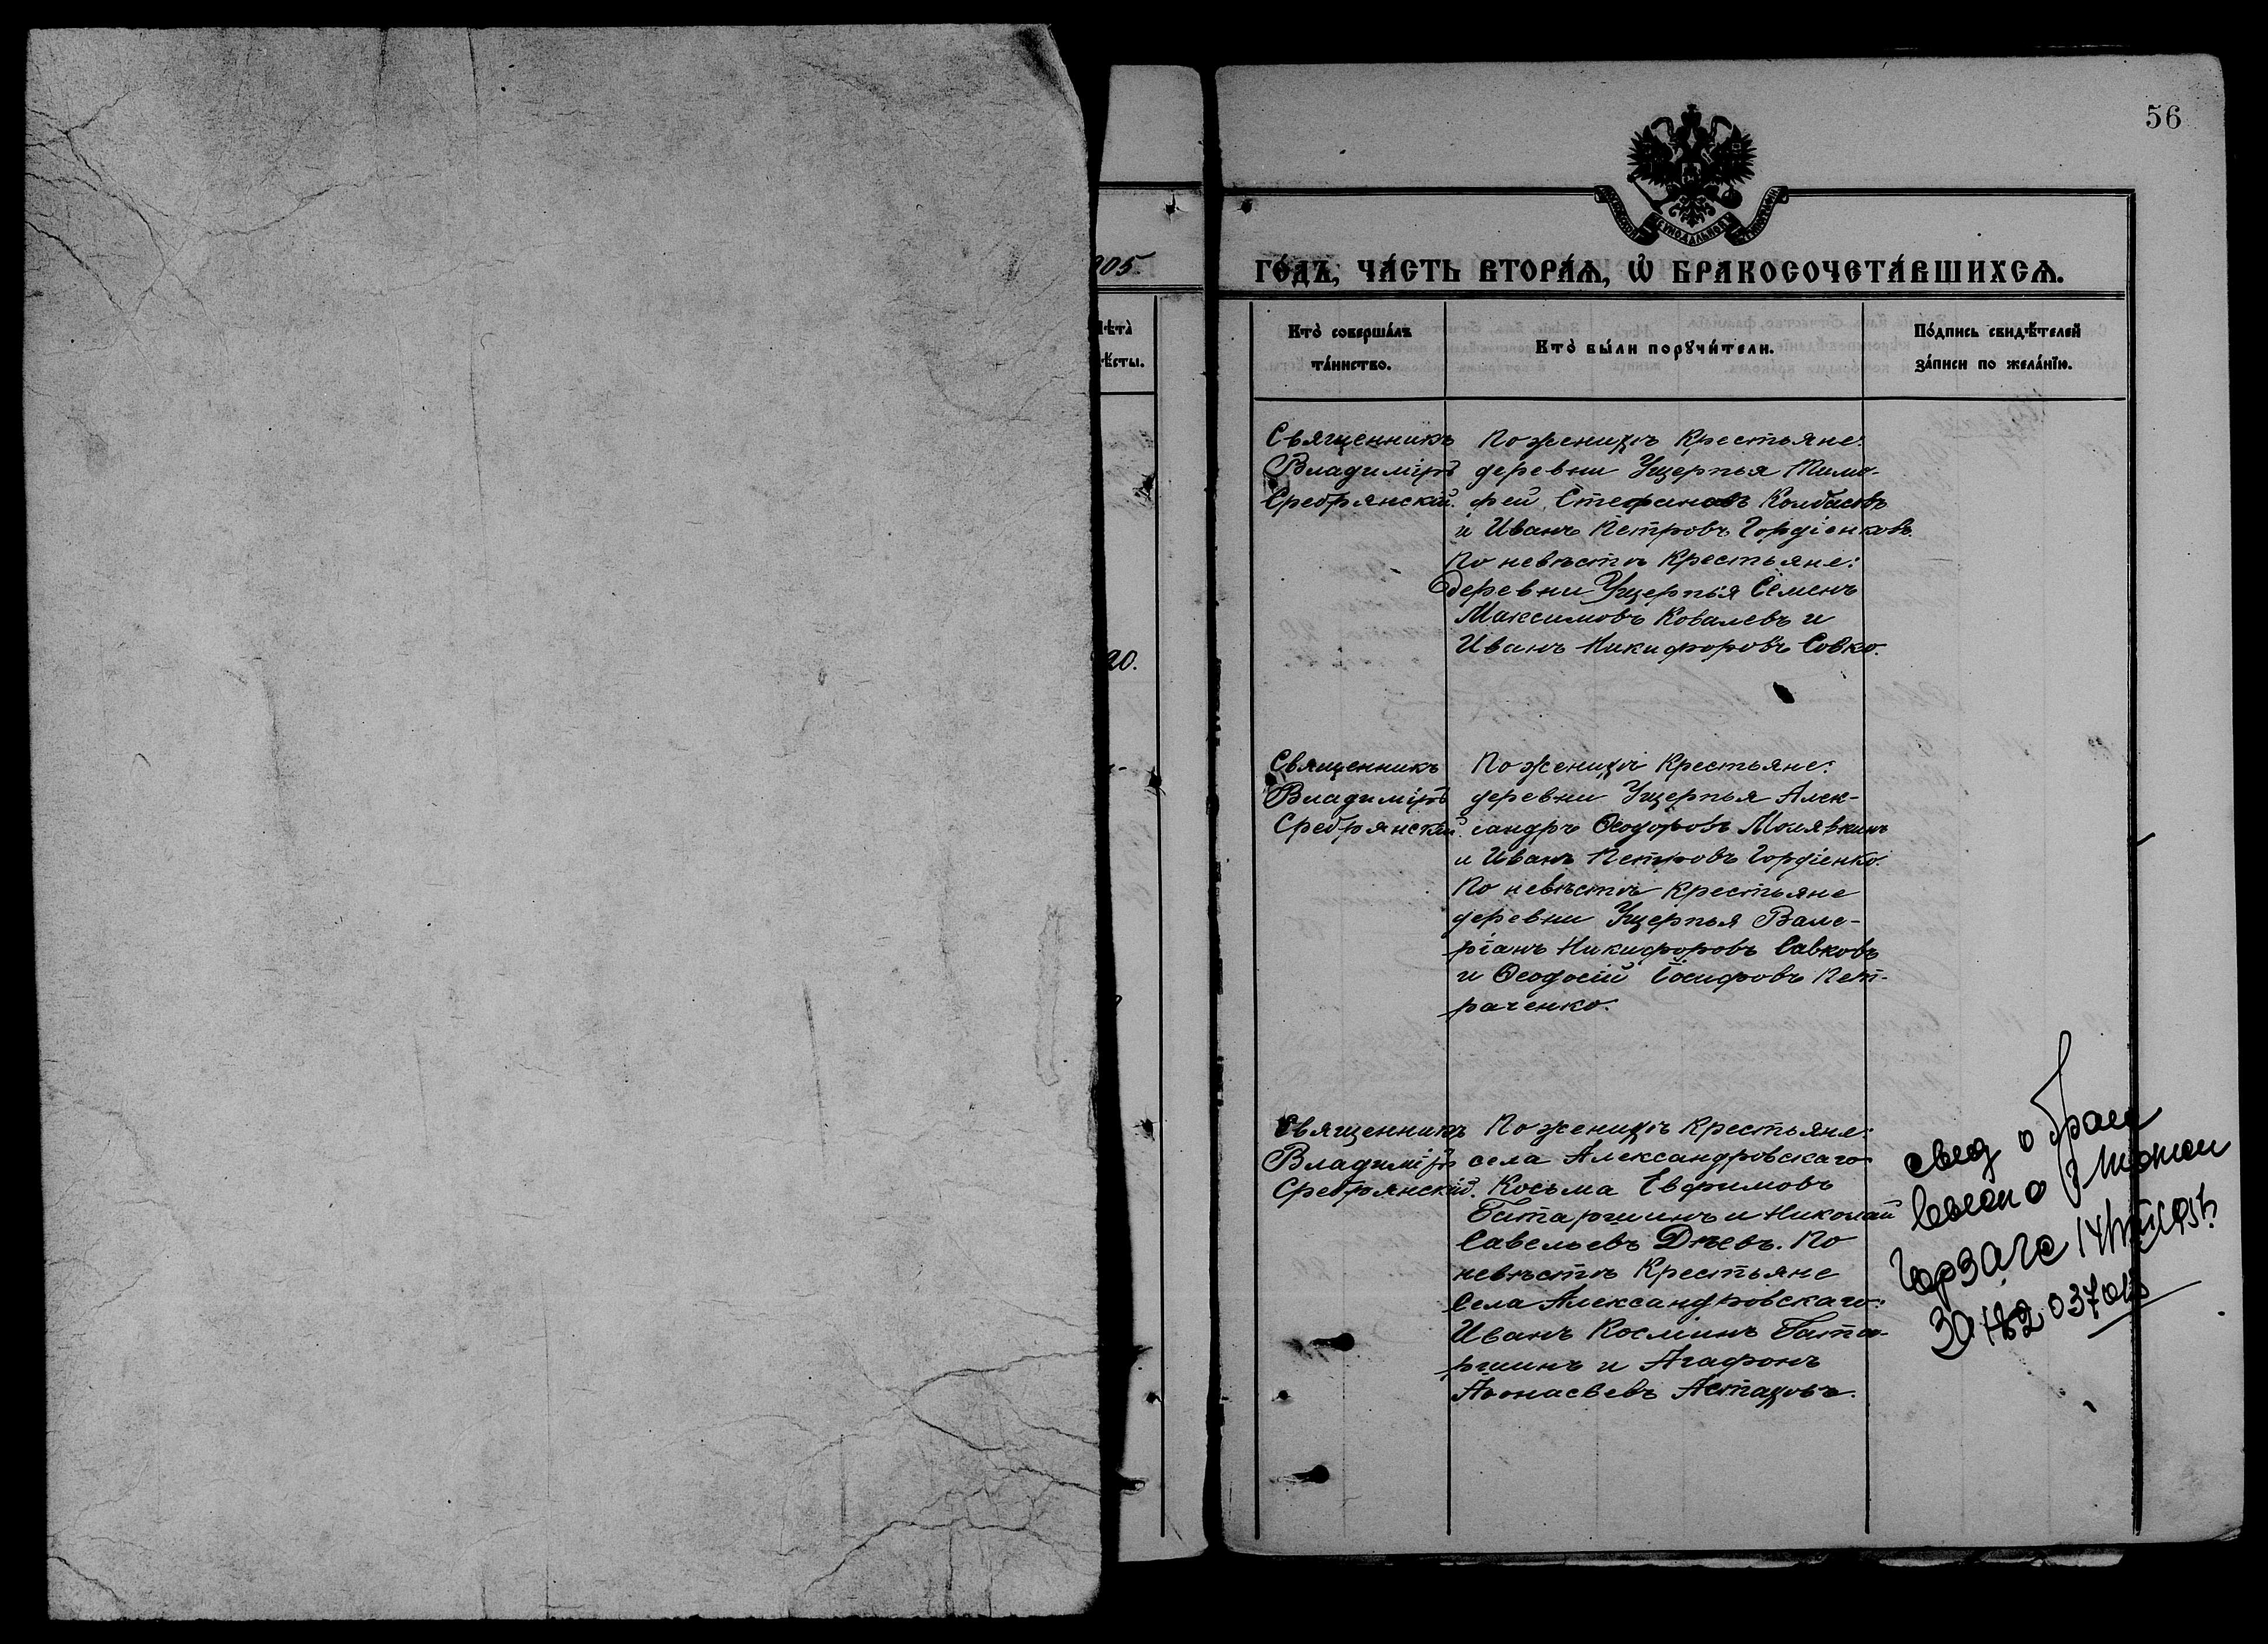 56
905
ГО́ДЪ, ЧА́СТЬ ВТОРА́Ѧ, Ѽ БРАКОСОЧЕТА́ВШИХСѦ.
Лѣта̀
Кто̀ соверша́лъ
та́инство.
Кто̀ бы́ли порꙋчи́тели.
По́дпись свидѣ́телей
за́писи по жела́нїю.
Священникъ
Владиміръ
Сребрянскій.
По женихѣ Крестьяне:
деревни Ущерпья Тимо-
фей Стефановъ Колбасовъ
и Иванъ Петровъ Гордіенковъ.
По невѣстѣ Крестьяне:
деревни Ущерпья Семенъ
Максимовъ Ковалевъ и
Иванъ Никифоровъ Совко.
20.
Священникъ
Владиміръ
Сребрянскій.
По женихѣ Крестьяне:
деревни Ущерпья Алек-
сандръ Ѳеодоровъ Молявкинъ
и Иванъ Петровъ Гордіенко.
По невѣстѣ Крестьяне
деревни Ущерпья Вале-
ріанъ Никифоровъ Савковъ
и Ѳеодосій Іосифовъ Пет-
раченко.
Священникъ
Владиміръ
Сребрянскій.
По женихѣ Крестьяне:
села Александровскаго
Косьма Евфимовъ
Батаргинъ и Николай
Савельевъ Дѣевъ. По
невѣстѣ Крестьяне
Села Александровскаго:
Иванъ Косминъ Бата-
ргинъ и Агафонъ
Аѳонасьевъ Астаховъ.
свед о браке